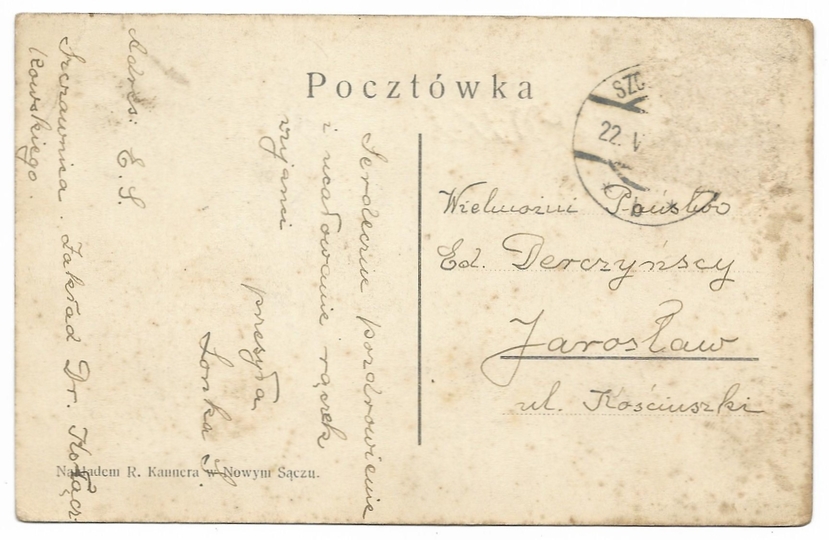 Pocztówka
SZC
22. V
* b *
Wielmożni Państwo
Ed. Derczyńscy
Jarosław
ul. Kościuszki
Serdeczne pozdrowienie
i ucałowanie rączek
wujanci
przesyła
Lonka S.
Adres: E. S.
Szczawnica. Zakład Dr. Kołącz-
kowskiego.
Nakładem R. Kannera w Nowym Sączu.